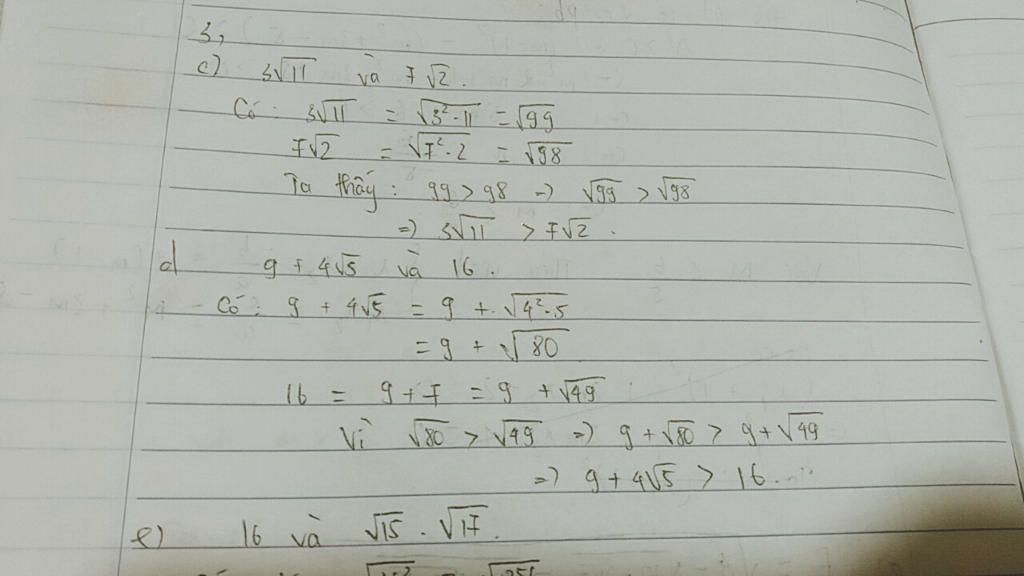 3,
c) 3√11 và 7√2.
Có: 3√11 = √3²·11 = √99
7√2 = √7²·2 = √98
Ta thấy: 99 > 98 => √99 > √98
=> 3√11 > 7√2.
d 9 + 4√5 và 16.
Có: 9 + 4√5 = 9 + √4²·5
= 9 + √80
16 = 9 + 7 = 9 + √49
Vì √80 > √49 => 9 + √80 > 9 + √49
=> 9 + 4√5 > 16
e) 16 và √15 . √17.